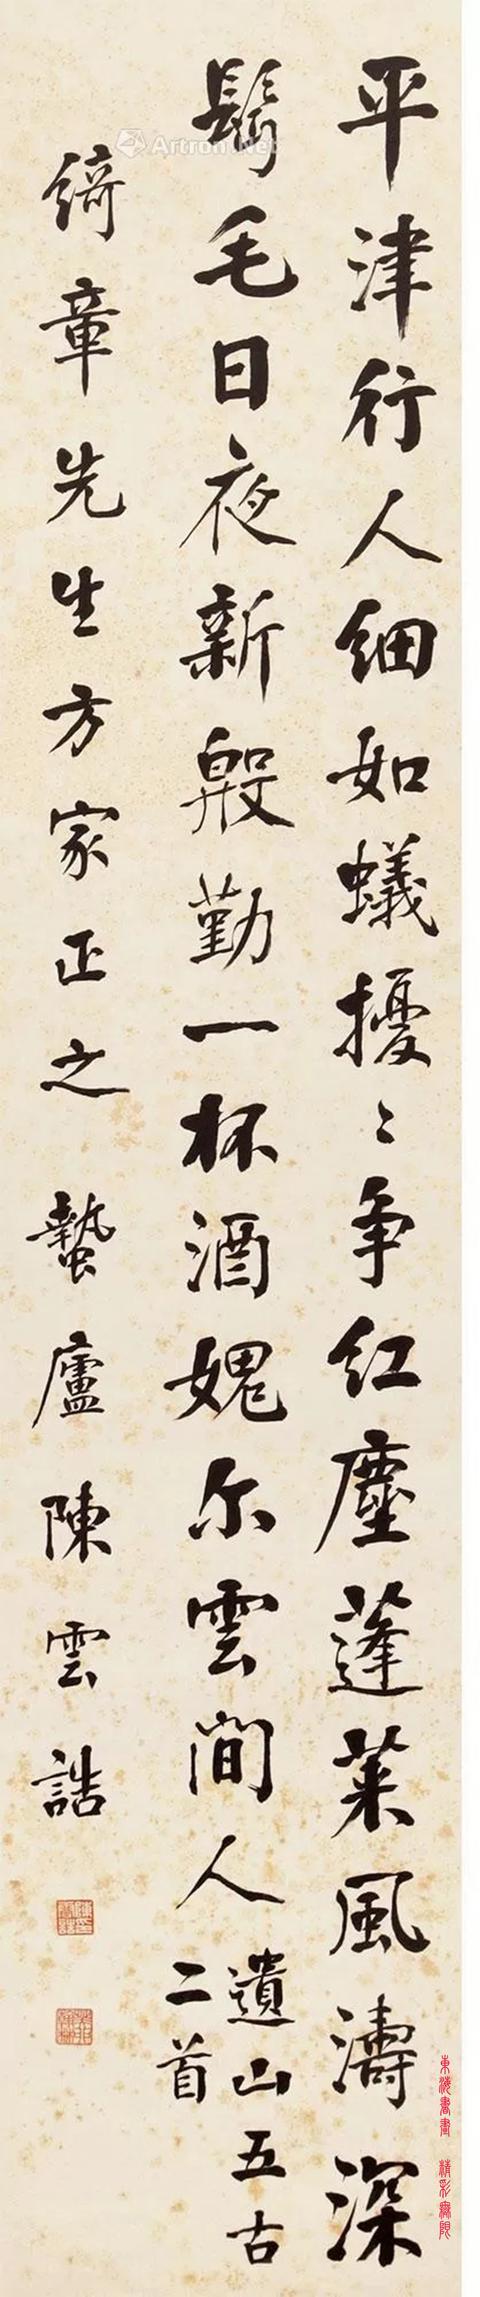 平津行人細如蟻擾〻爭紅塵蓬萊風濤深
鬢毛日夜新殷勤一杯酒媿尔雲間人
遺山五古
二首
綺章先生方家正之 蟄廬陳雲誥
Artron.Net
東海書畫 精彩無限